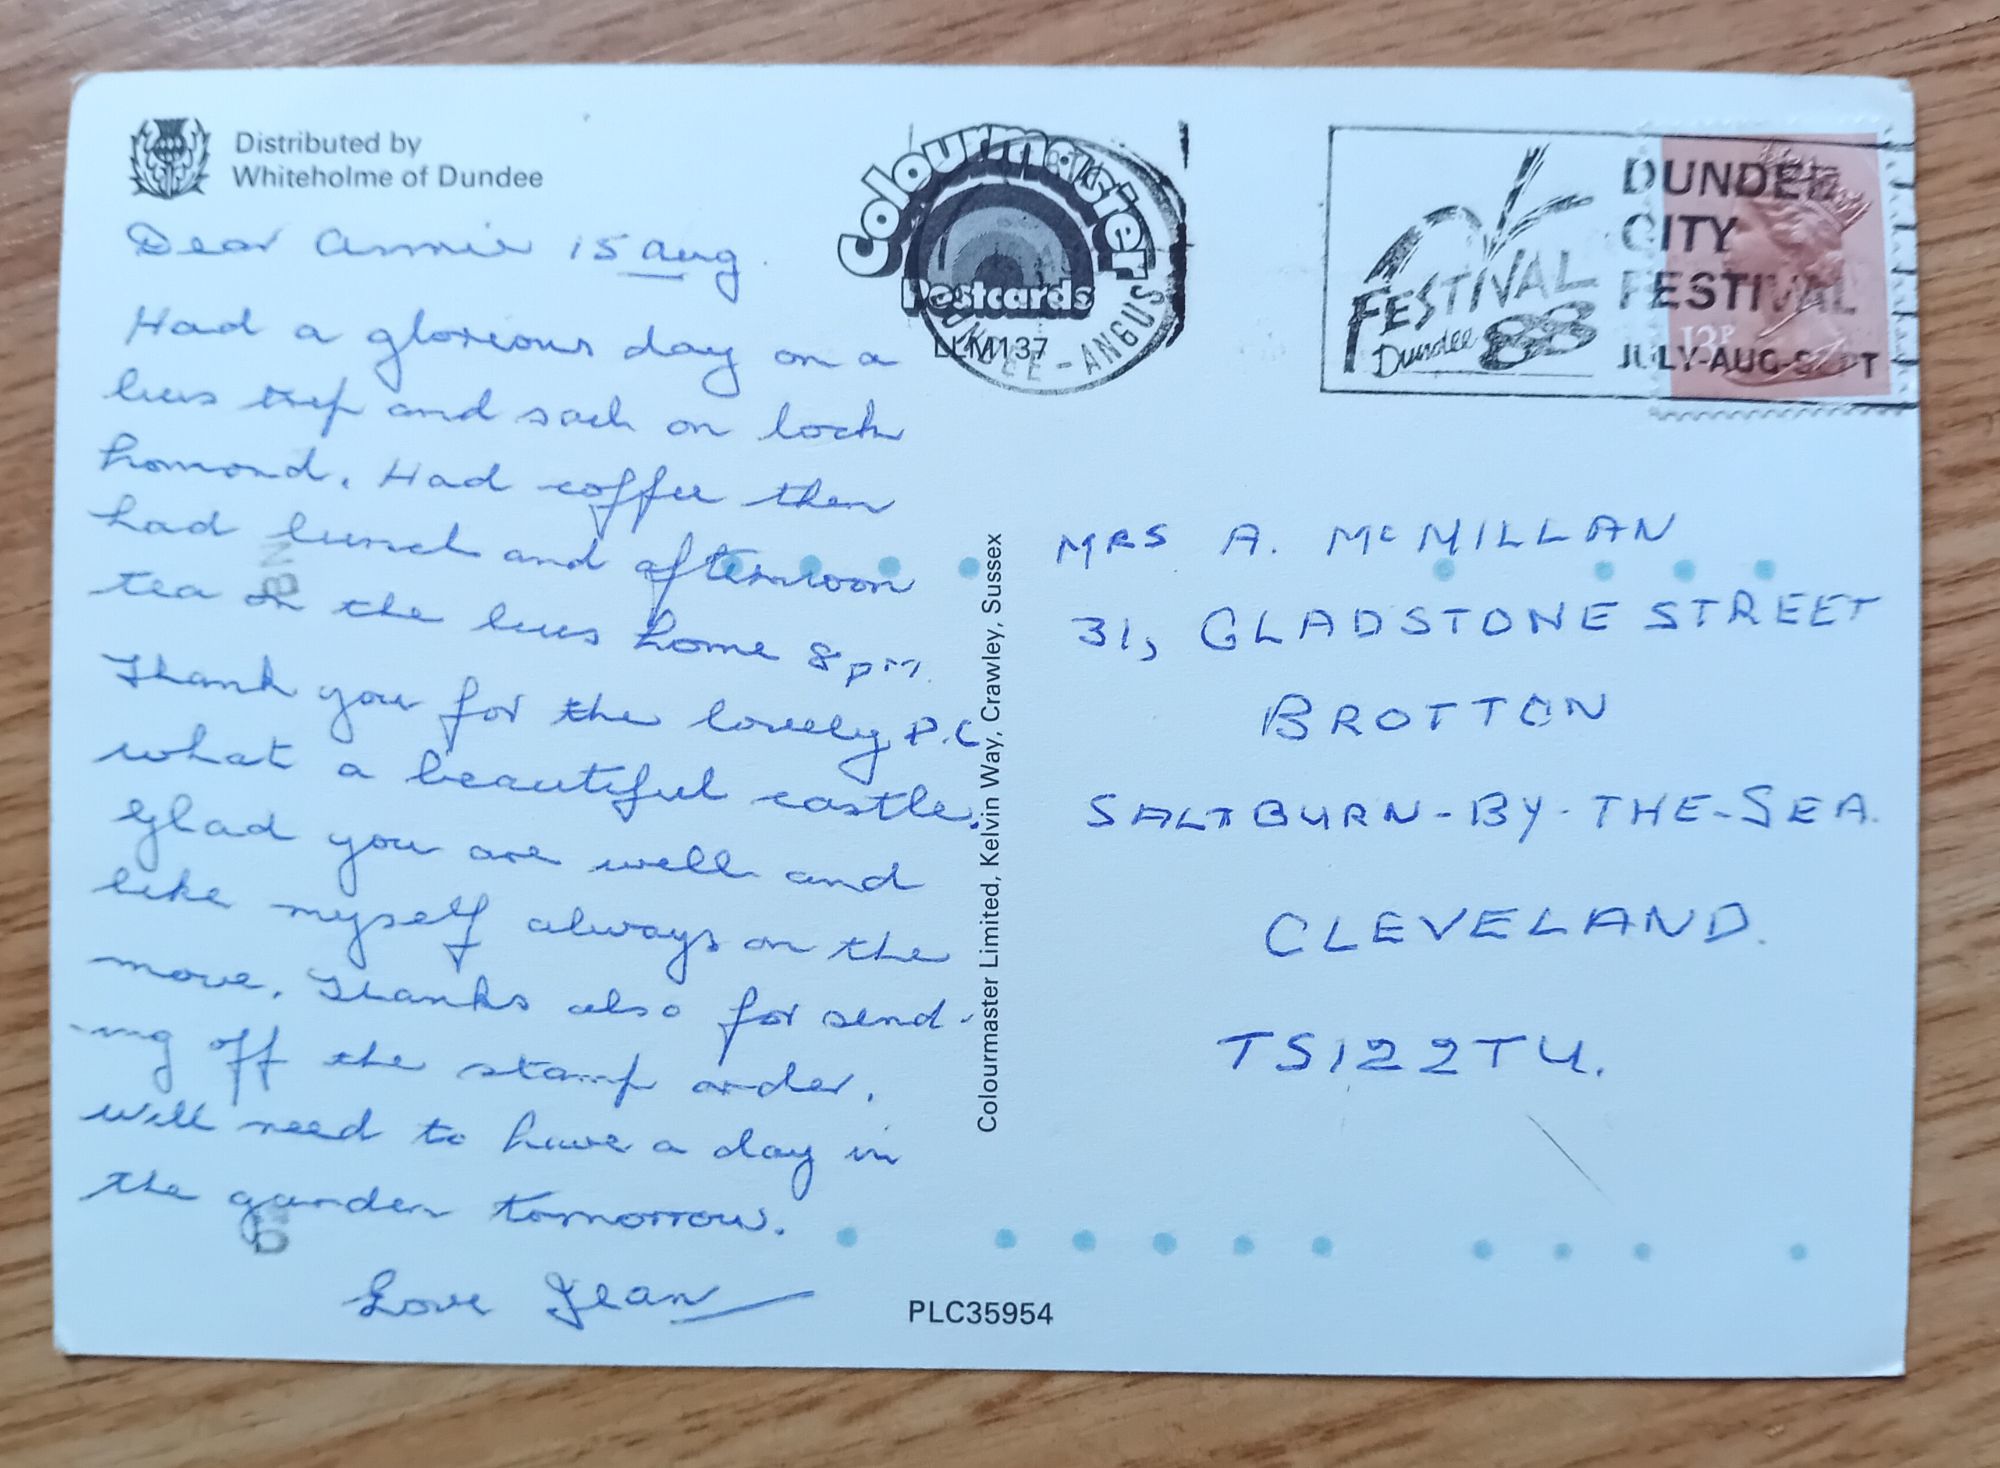 Distributed by
Whiteholme of Dundee
Dear Annie 15 Aug.
Had a glorious day on a
bus trip and sail on loch
Lomond. Had coffee then
had lunch and afternoon
tea on the bus home 8pm.
Thank you for the lovely P.C.
what a beautiful castle.
Glad you are well and
like myself always on the
move. Thanks also for send-
-ing off the stamp order.
Will need to have a day in
the garden tomorrow.
Love Jean
Colourmaster
Postcards
LLM137
DUNDEE - ANGUS
FESTIVAL
Dundee 88
DUNDEE
CITY
FESTIVAL
JULY-AUG-SEPT
13P
Colourmaster Limited, Kelvin Way, Crawley, Sussex
MRS A. McMILLAN
31, GLADSTONE STREET
BROTTON
SALTBURN-BY-THE-SEA.
CLEVELAND.
TS122TU.
PLC35954